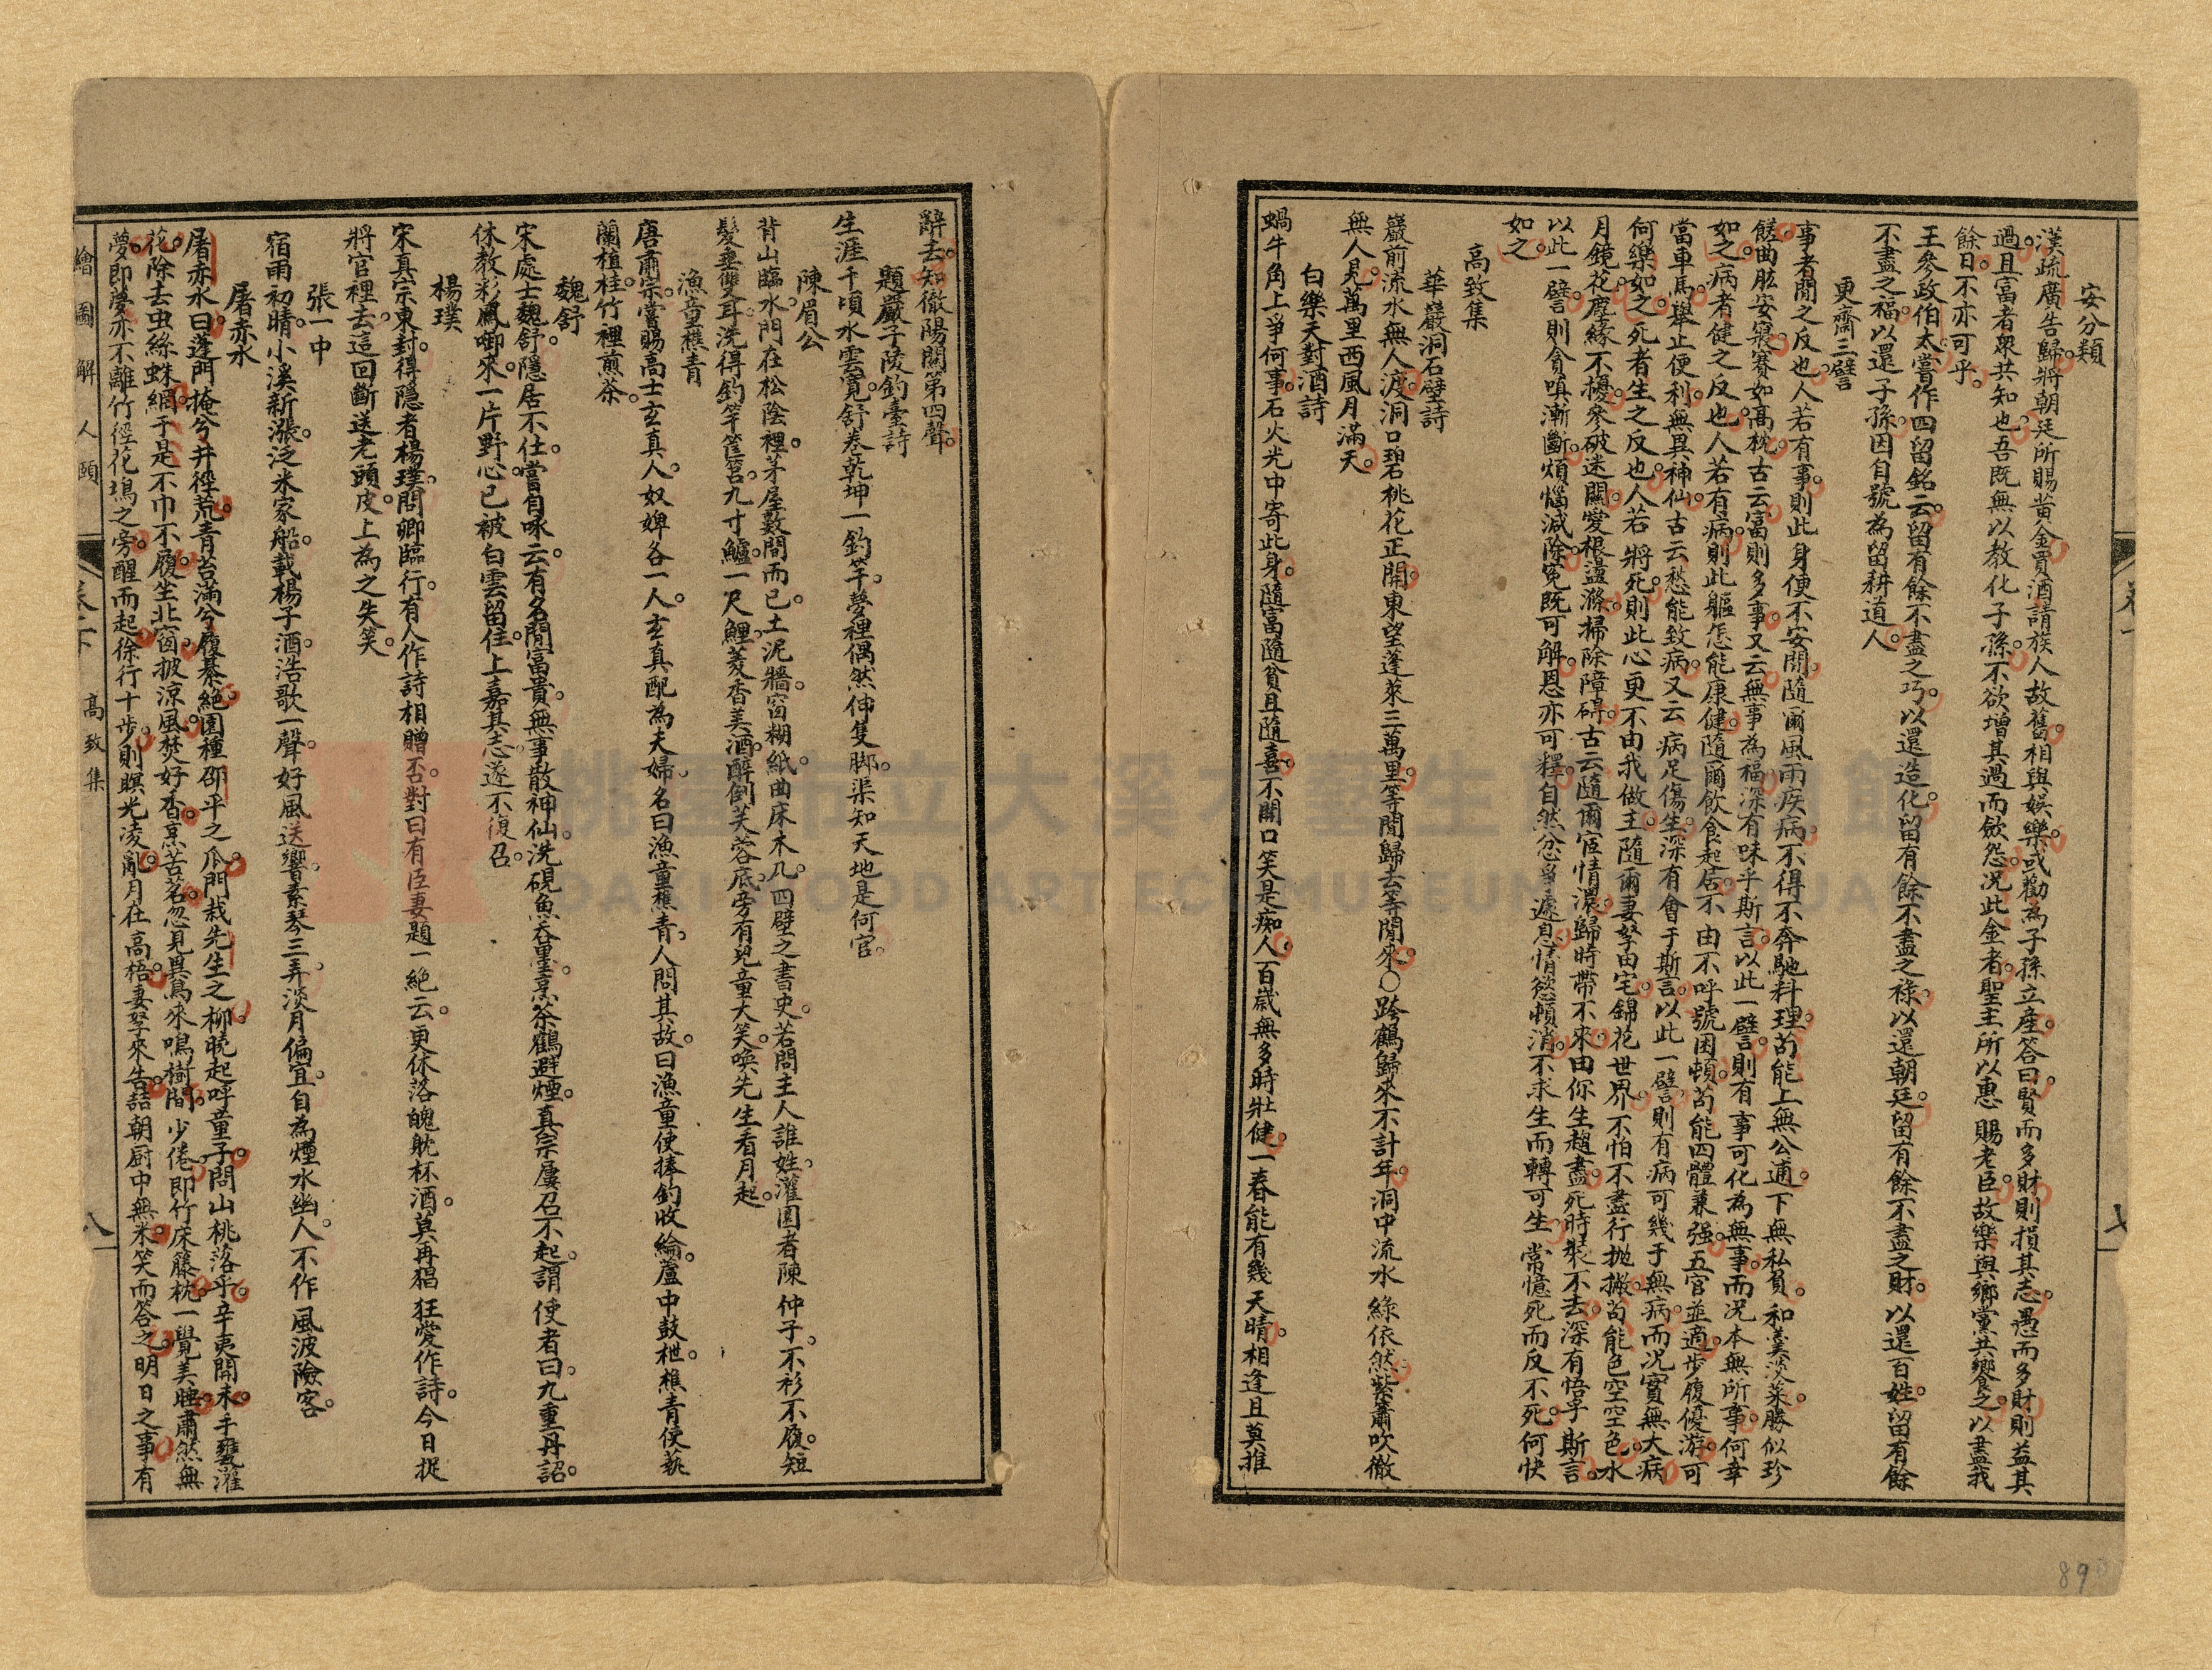 安分類
漢疏廣告歸。將朝廷所賜黃金買酒請族人故舊。相與娛樂。或勸為子孫立產。答曰。賢而多財則損其志。愚而多財則益其
過。且富者眾共知也。吾既無以教化子孫。不欲增其過而歛怨。况此金者。聖主所以惠賜老臣。故樂與鄉黨共饗食之。以盡我
餘日。不亦可乎。
王參政伯太嘗作四留銘云。留有餘不盡之巧。以還造化。留有餘不盡之祿。以還朝廷。留有餘不盡之財。以還百姓。留有餘
不盡之福。以還子孫。因自號為留耕道人。
更齋三譬
事者閒之反也。人若有事。則此身便不安閒。隨爾風雨疾病。不得不奔馳料理。苟能上無公逋。下無私負。和羹淡菜。勝似珍
饈。曲肱安寢。賽如高枕。古云富則多事。又云無事為福。深有味乎斯言。以此一譬。則有事可化為無事。而况本無所事。何幸
如之。病者健之反也。人若有病。則此軀怎能康健。隨爾飲食起居。不由不呼號困頓。苟能四體兼强。五官並適。步履優游。可
當車馬。舉止便利。無異神仙。古云愁能致病。又云病足傷生。深有會于斯言。以此一譬。則有病可幾于無病。而况實無大病。
何樂如之。死者生之反也。人若將死。則此心更不由我做主。隨爾妻孥田宅。錦花世界。不怕不盡行拋撇。苟能色空空色。水
月鏡花。塵緣不擾。參破迷關。愛根盪滌。掃除障碍。古云隨爾宦情濃。歸時帶不來。由你生趨盡。死時裝不去。深有悟乎斯言。
以此一譬。則貪嗔漸斷。煩惱減除。冤既可解。恩亦可釋。自然忿爭遽息。情慾頓消。不求生而轉可生。常憶死而反不死。何快
如之。
高致集
華巖洞石壁詩
巖前流水無人渡。洞口碧桃花正開。東望蓬萊三萬里。等閒歸去等閒來。○跨鶴歸來不計年。洞中流水綠依然。紫簫吹徹
無人見。萬里西風月滿天。
白樂天對酒詩
蝸牛角上爭何事。石火光中寄此身。隨富隨貧且隨喜。不開口笑是痴人。百歲無多時壯健。一春能有幾天晴。相逢且莫推
辭去。知徹陽關第四聲。
題嚴子陵釣臺詩
生涯千頃水雲寬。舒卷乾坤一釣竿。夢裡偶然伸隻脚。渠知天地是何官。
陳眉公
背山臨水。門在松陰裡。茅屋數間而已。土泥牆。窗糊紙。曲床木几。四壁之書史。若問主人誰姓。灌園者陳仲子。不衫不履。短
髮垂雙耳。洗得釣竿筐筥。九寸鱸。一尺鯉。菱香美酒。醉倒芙蓉底。旁有兒童大笑。喚先生看月起。
漁童樵青
唐肅宗嘗賜高士玄真人。奴婢各一人。玄真配為夫婦。名曰漁童樵青。人問其故。曰漁童使捧釣收綸。蘆中鼓枻。樵青使蓺
蘭植桂。竹裡煎茶。
魏舒
宋處士魏舒。隱居不仕。嘗自咏云。有名閒富貴。無事散神仙。洗硯魚吞墨。烹茶鶴避煙。真宗屢召不起。謂使者曰。九重丹詔。
休教彩鳳啣來。一片野心。已被白雲留住。上嘉其志。遂不復召。
楊璞
宋真宗東封。得隱者楊璞。問卿臨行。有人作詩相贈否。對曰有臣妻題一絕云。更休落魄躭杯酒。莫再猖狂愛作詩。今日捉
將官裡去。這回斷送老頭皮。上為之失笑。
張一中
宿雨初晴。小溪新漲。泛米家船。載楊子酒。浩歌一聲。好風送響。素琴三弄。淡月偏宜。自為煙水幽人。不作風波險客。
屠赤水
屠赤水曰。蓬門掩兮井徑荒。青苔滿兮履綦絕。園種邵平之瓜。門栽先生之柳。曉起呼童子。問山桃落乎。辛夷開未。手甕灌
花。除去虫絲蛛網。于是不巾不履。坐北窗。披涼風。焚好香。烹苦茗。忽見異鳥來鳴樹間。少倦即竹床籐枕。一覺美睡。蕭然無
夢。即夢亦不離竹徑花塢之旁。醒而起。徐行十步。則暝光凌亂。月在高梧。妻孥來告。詰朝厨中無米。笑而答之。明日之事。有
繪圖解人頤
卷一下
高致集
八
七
桃園市立大溪木藝生態博物館
DAXI WOOD ART ECOMUSEUM, TAOYUAN
89